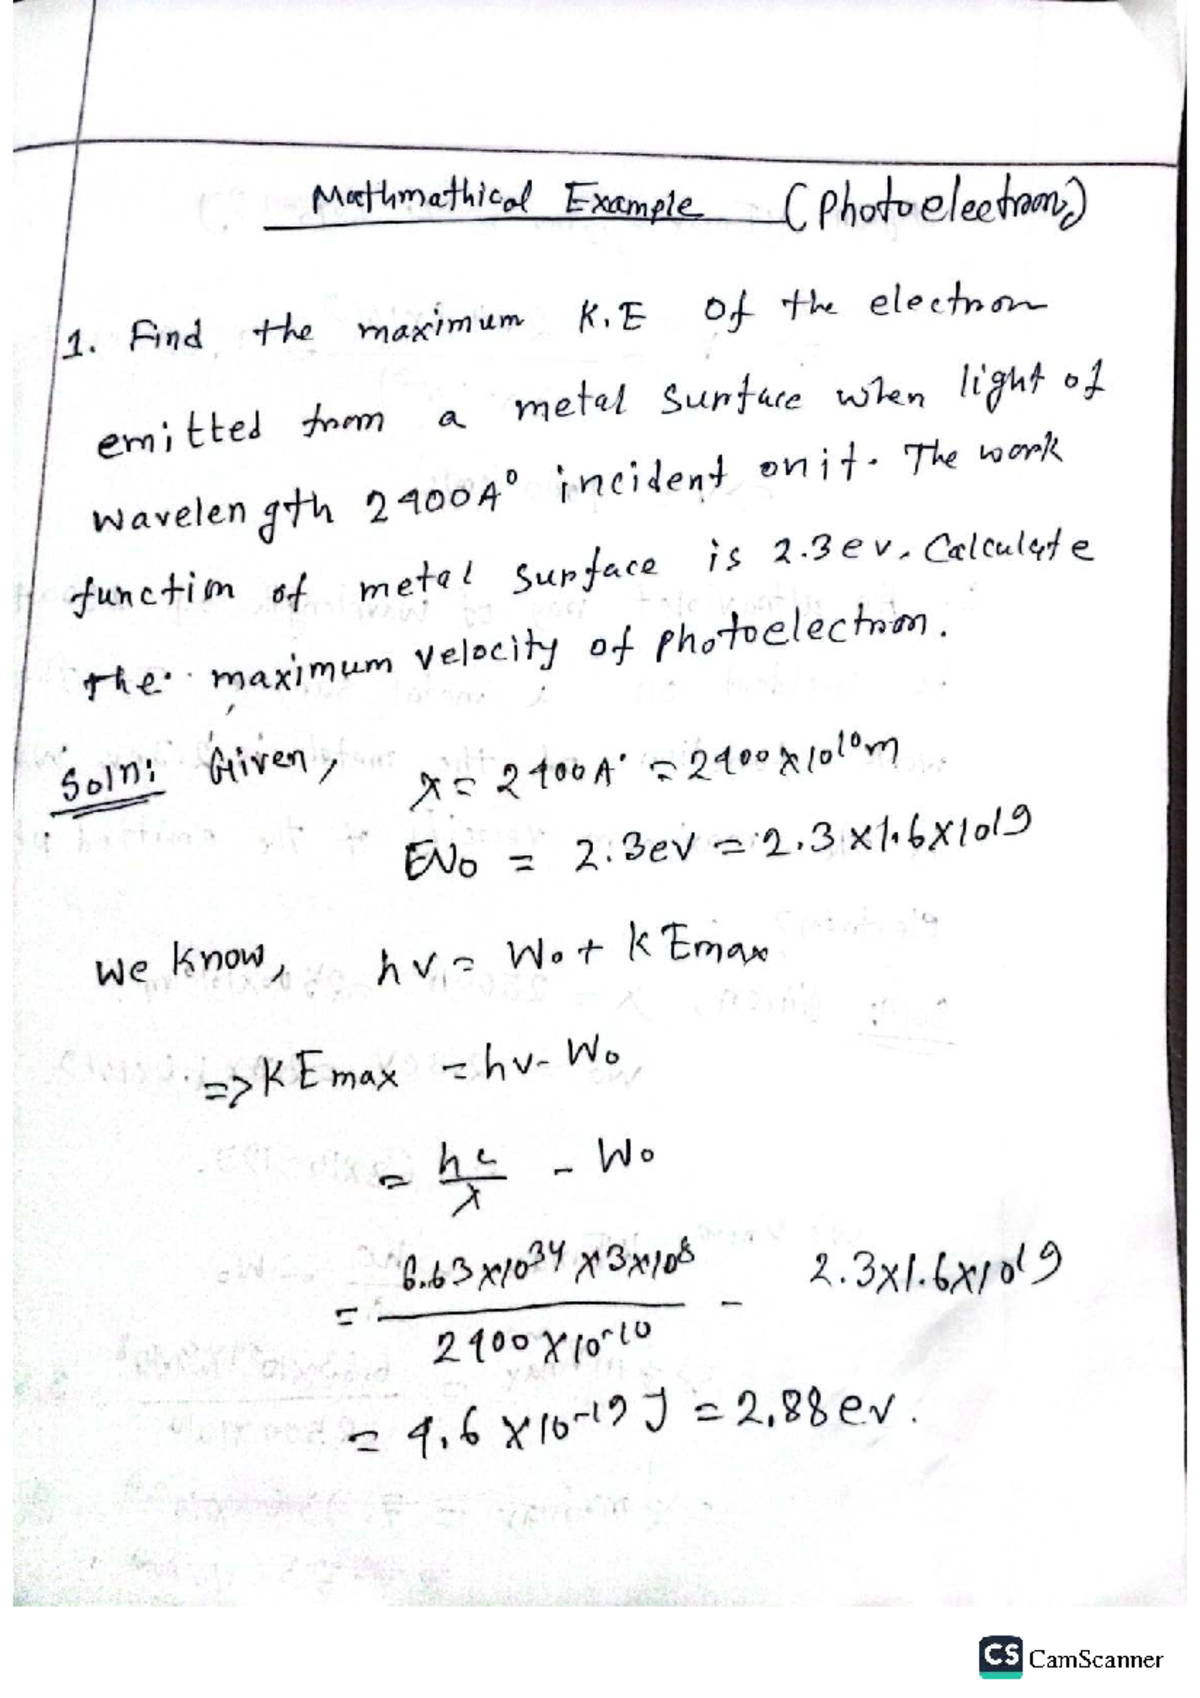 Mathmathical Example (Photoelectron)
1. Find the maximum K.E of the electron
emitted from a metal surface when light of
wavelength 2400A° incident on it. The work
function of metal surface is 2.3 ev. Calculate
the maximum velocity of photoelectron.
Soln: Given, λ = 2400A° = 2400×10^10 m
EW0 = 2.3ev = 2.3×1.6×10^19
We know, hν = W0 + KEmax
=> KEmax = hν - W0
= hc/λ - W0
= 6.63×10^34×3×10^8 / 2400×10^-10 - 2.3×1.6×10^19
= 4.6×10^-19 J = 2.88 ev.
CS CamScanner